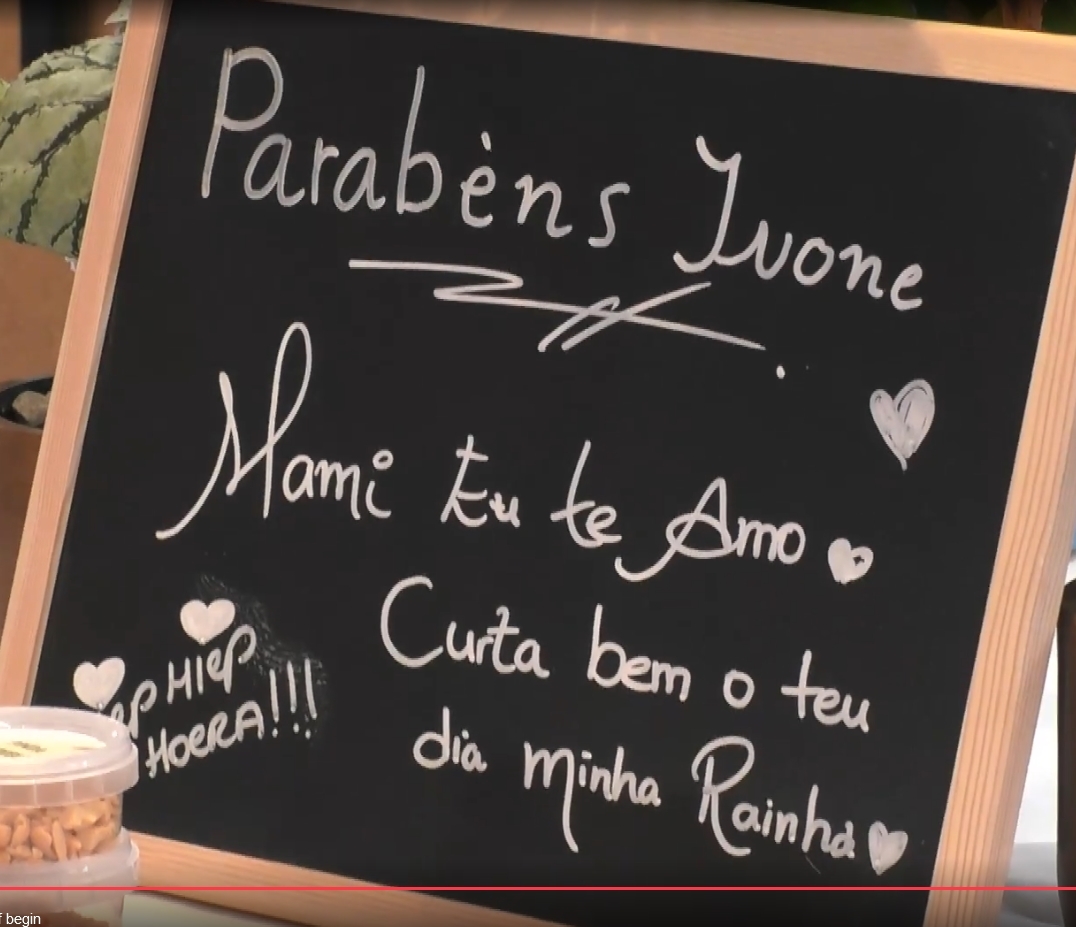 Parabéns Ivone
Mami Eu te Amo
Curta bem o teu
dia minha Rainha
HIEP
HOERA!!!
begin